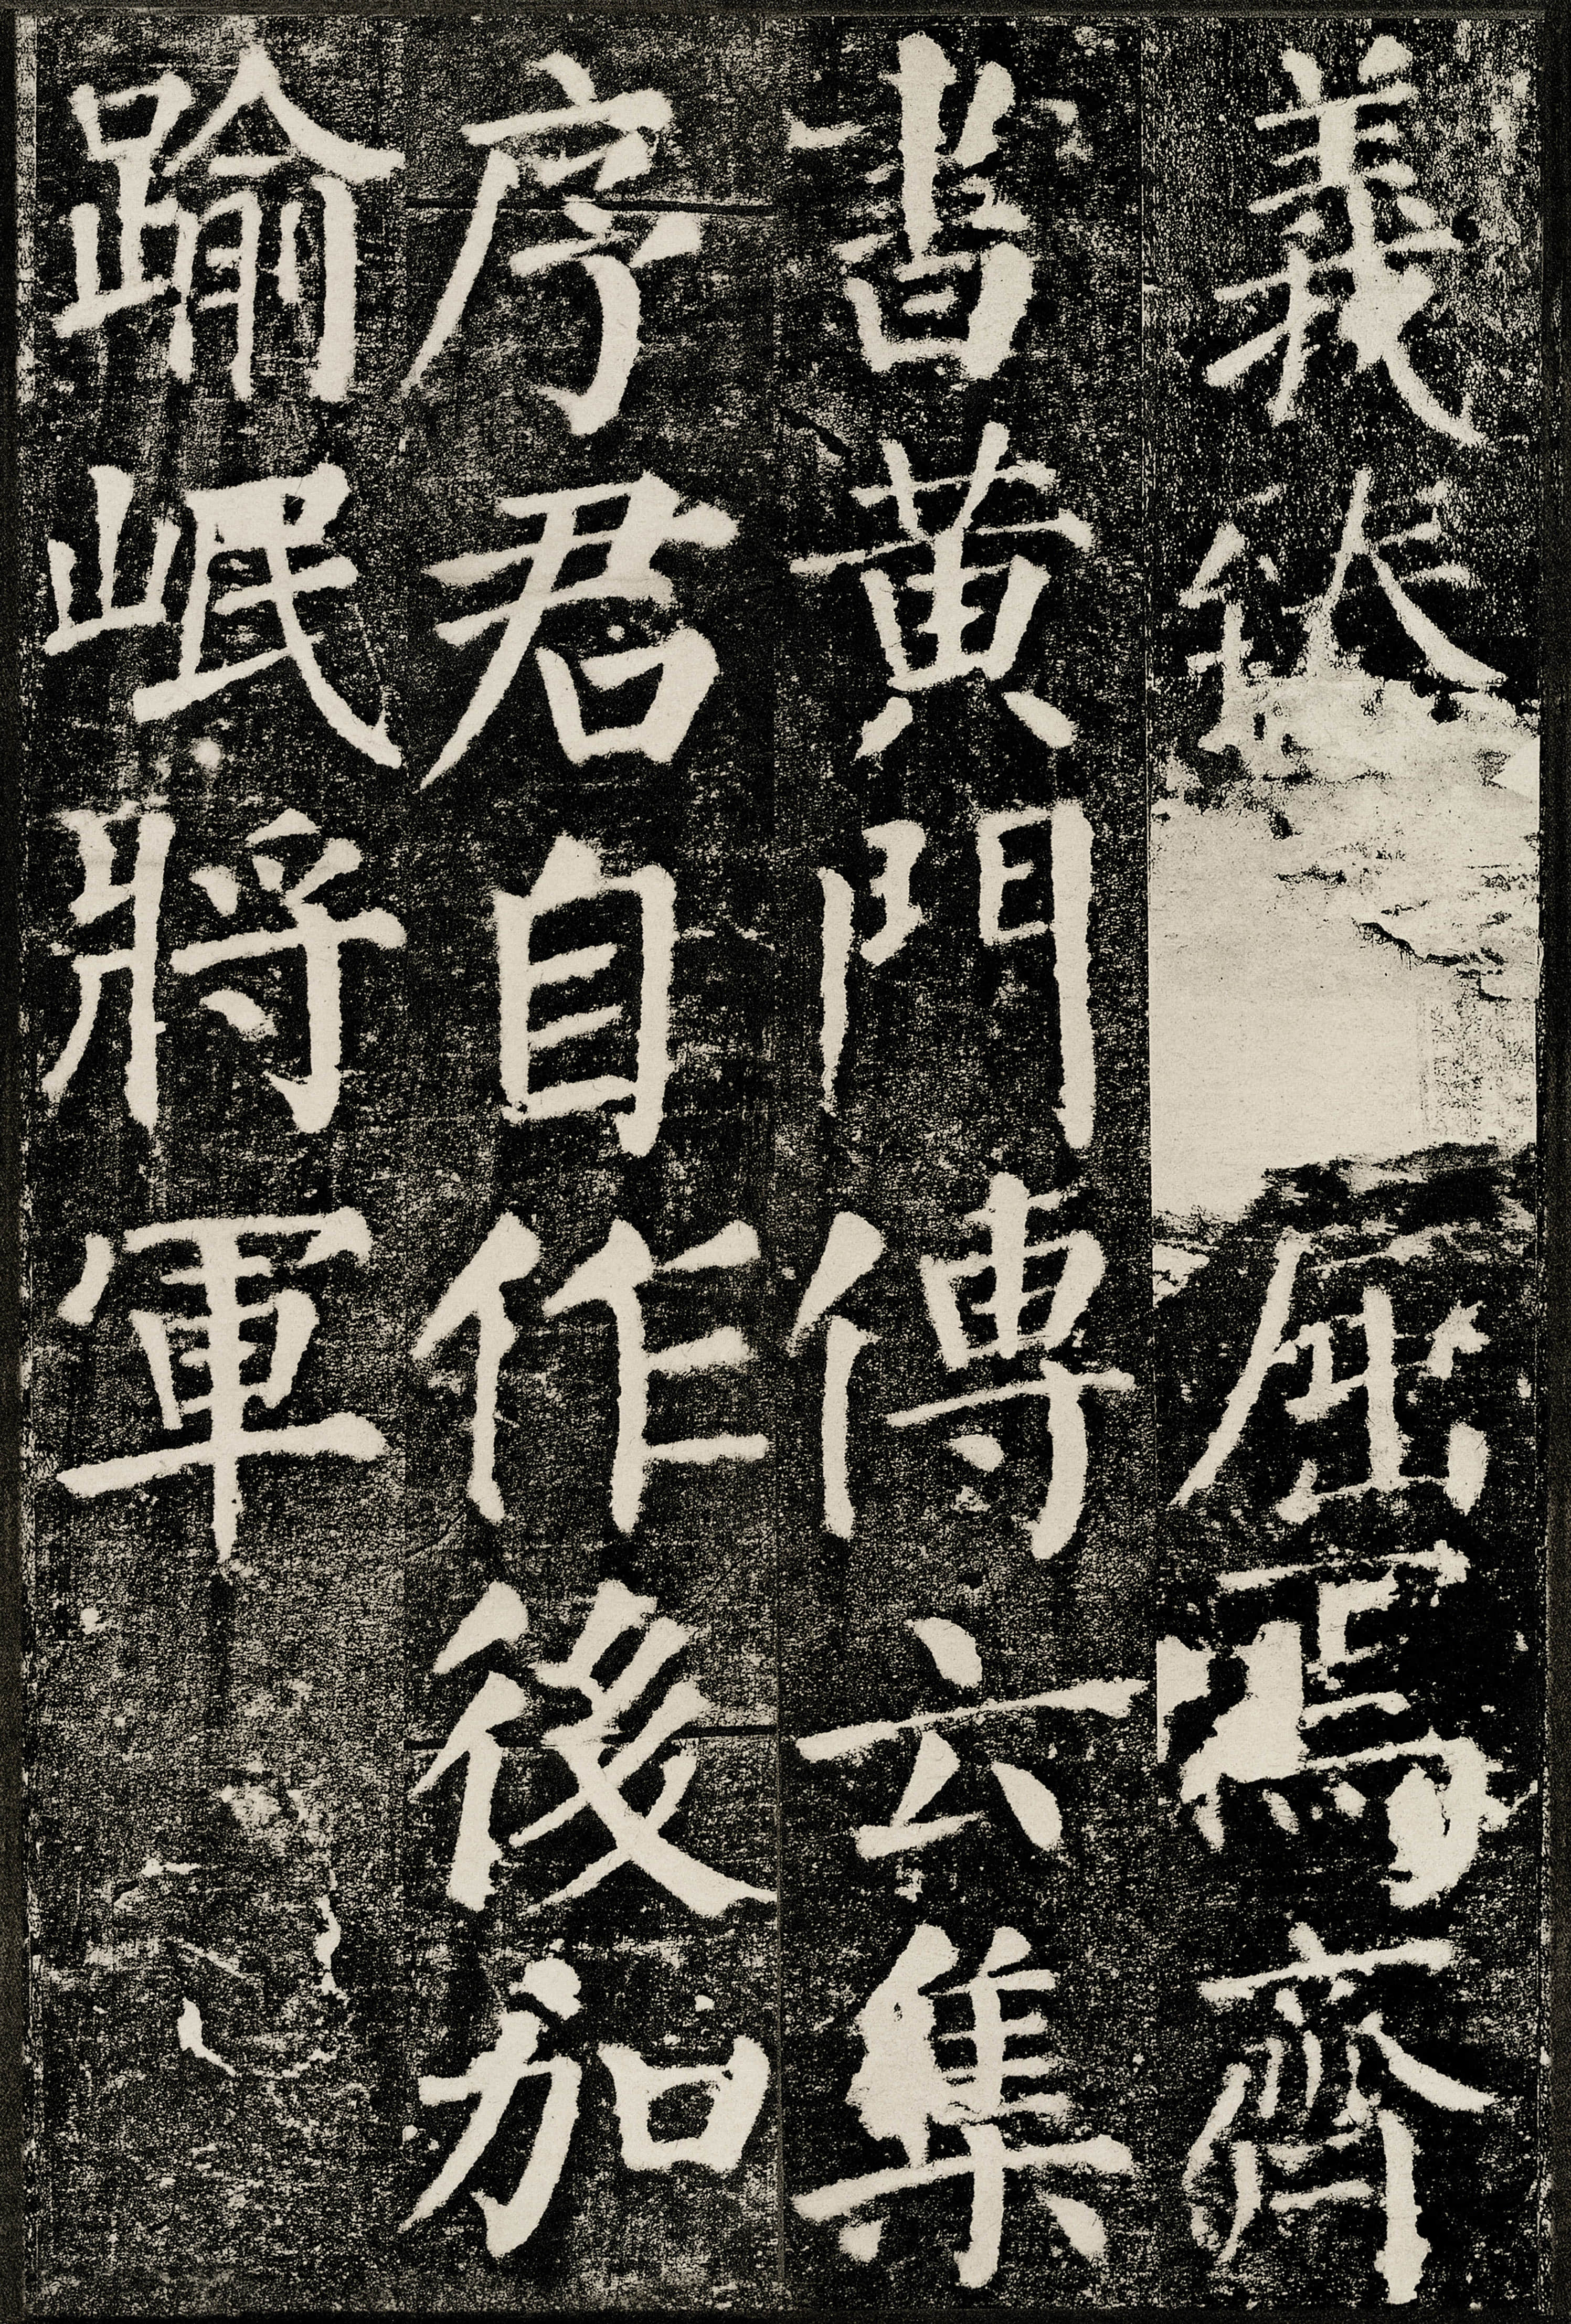 義從屈焉齊
書黃門傳云集
序君自作後加
踰岷將軍